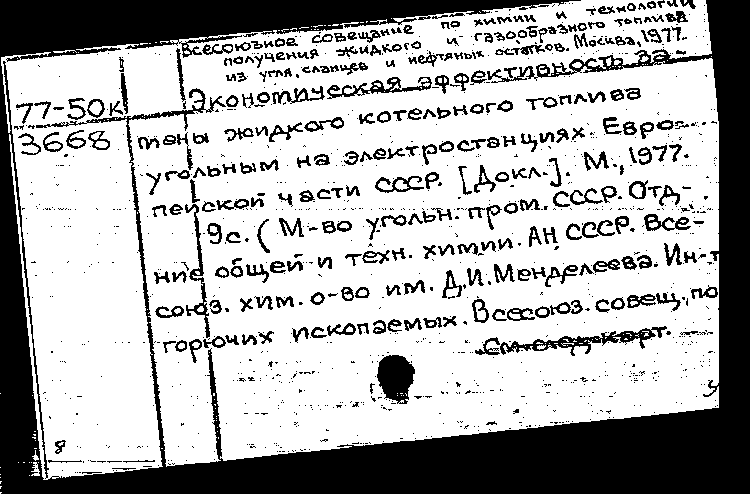 Всесоюзное совещание по химии и технологии
получения жидкого и газообразного топлива
из угля, сланцев и нефтяных остатков. Москва, 1977
77-50к Экономическая эффективность за-
3668 мены жидкого котельного топлива
угольным на электростанциях Евро-
пейской части СССР. [Докл.]. М., 1977.
9с. (М-во угольн. пром. СССР. Отд-
ние общей и техн. химии. АН СССР. Все-
союз. хим. о-во им. Д.И. Менделеева. Ин-т
горючих ископаемых. Всесоюз. совещ. по
См. след. карт.
8